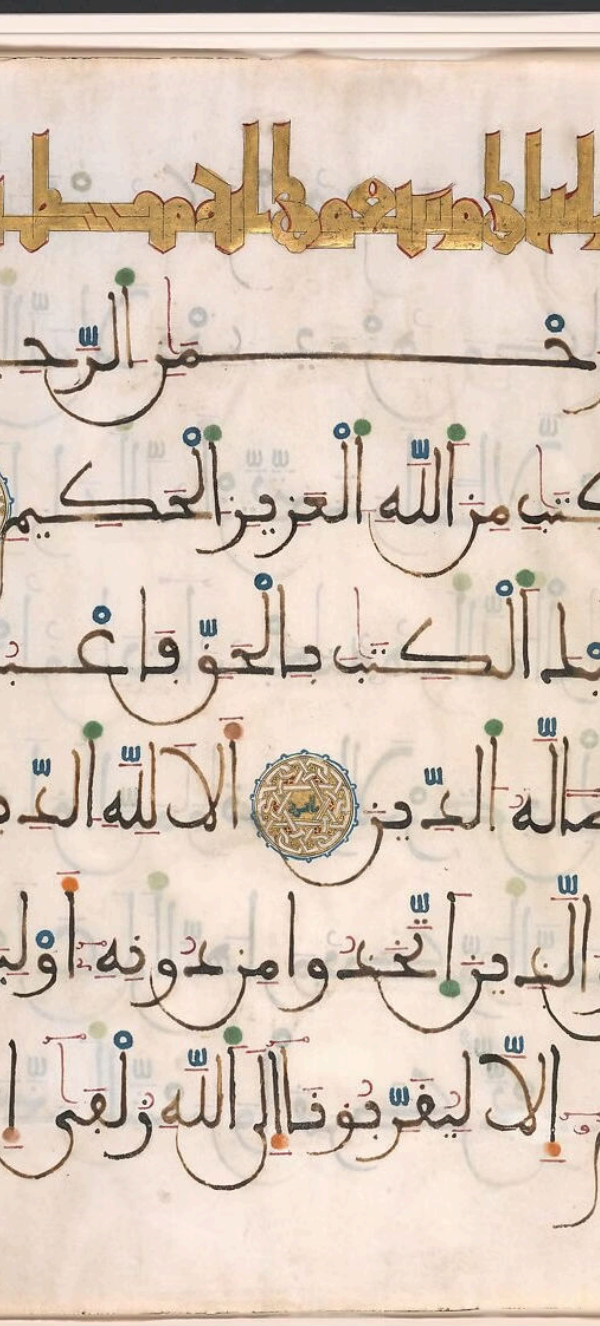 وسبعون
حمن الرّحـ
ـكتب من الله العزيز الحكيم
الكتب بالحقّ فاعبـ
ـصا له الدّين ألا لله الدّيـ
والّذين اتّخذوا من دونه أوليـ
إلّا ليقرّبونا إلى الله زلفى إ